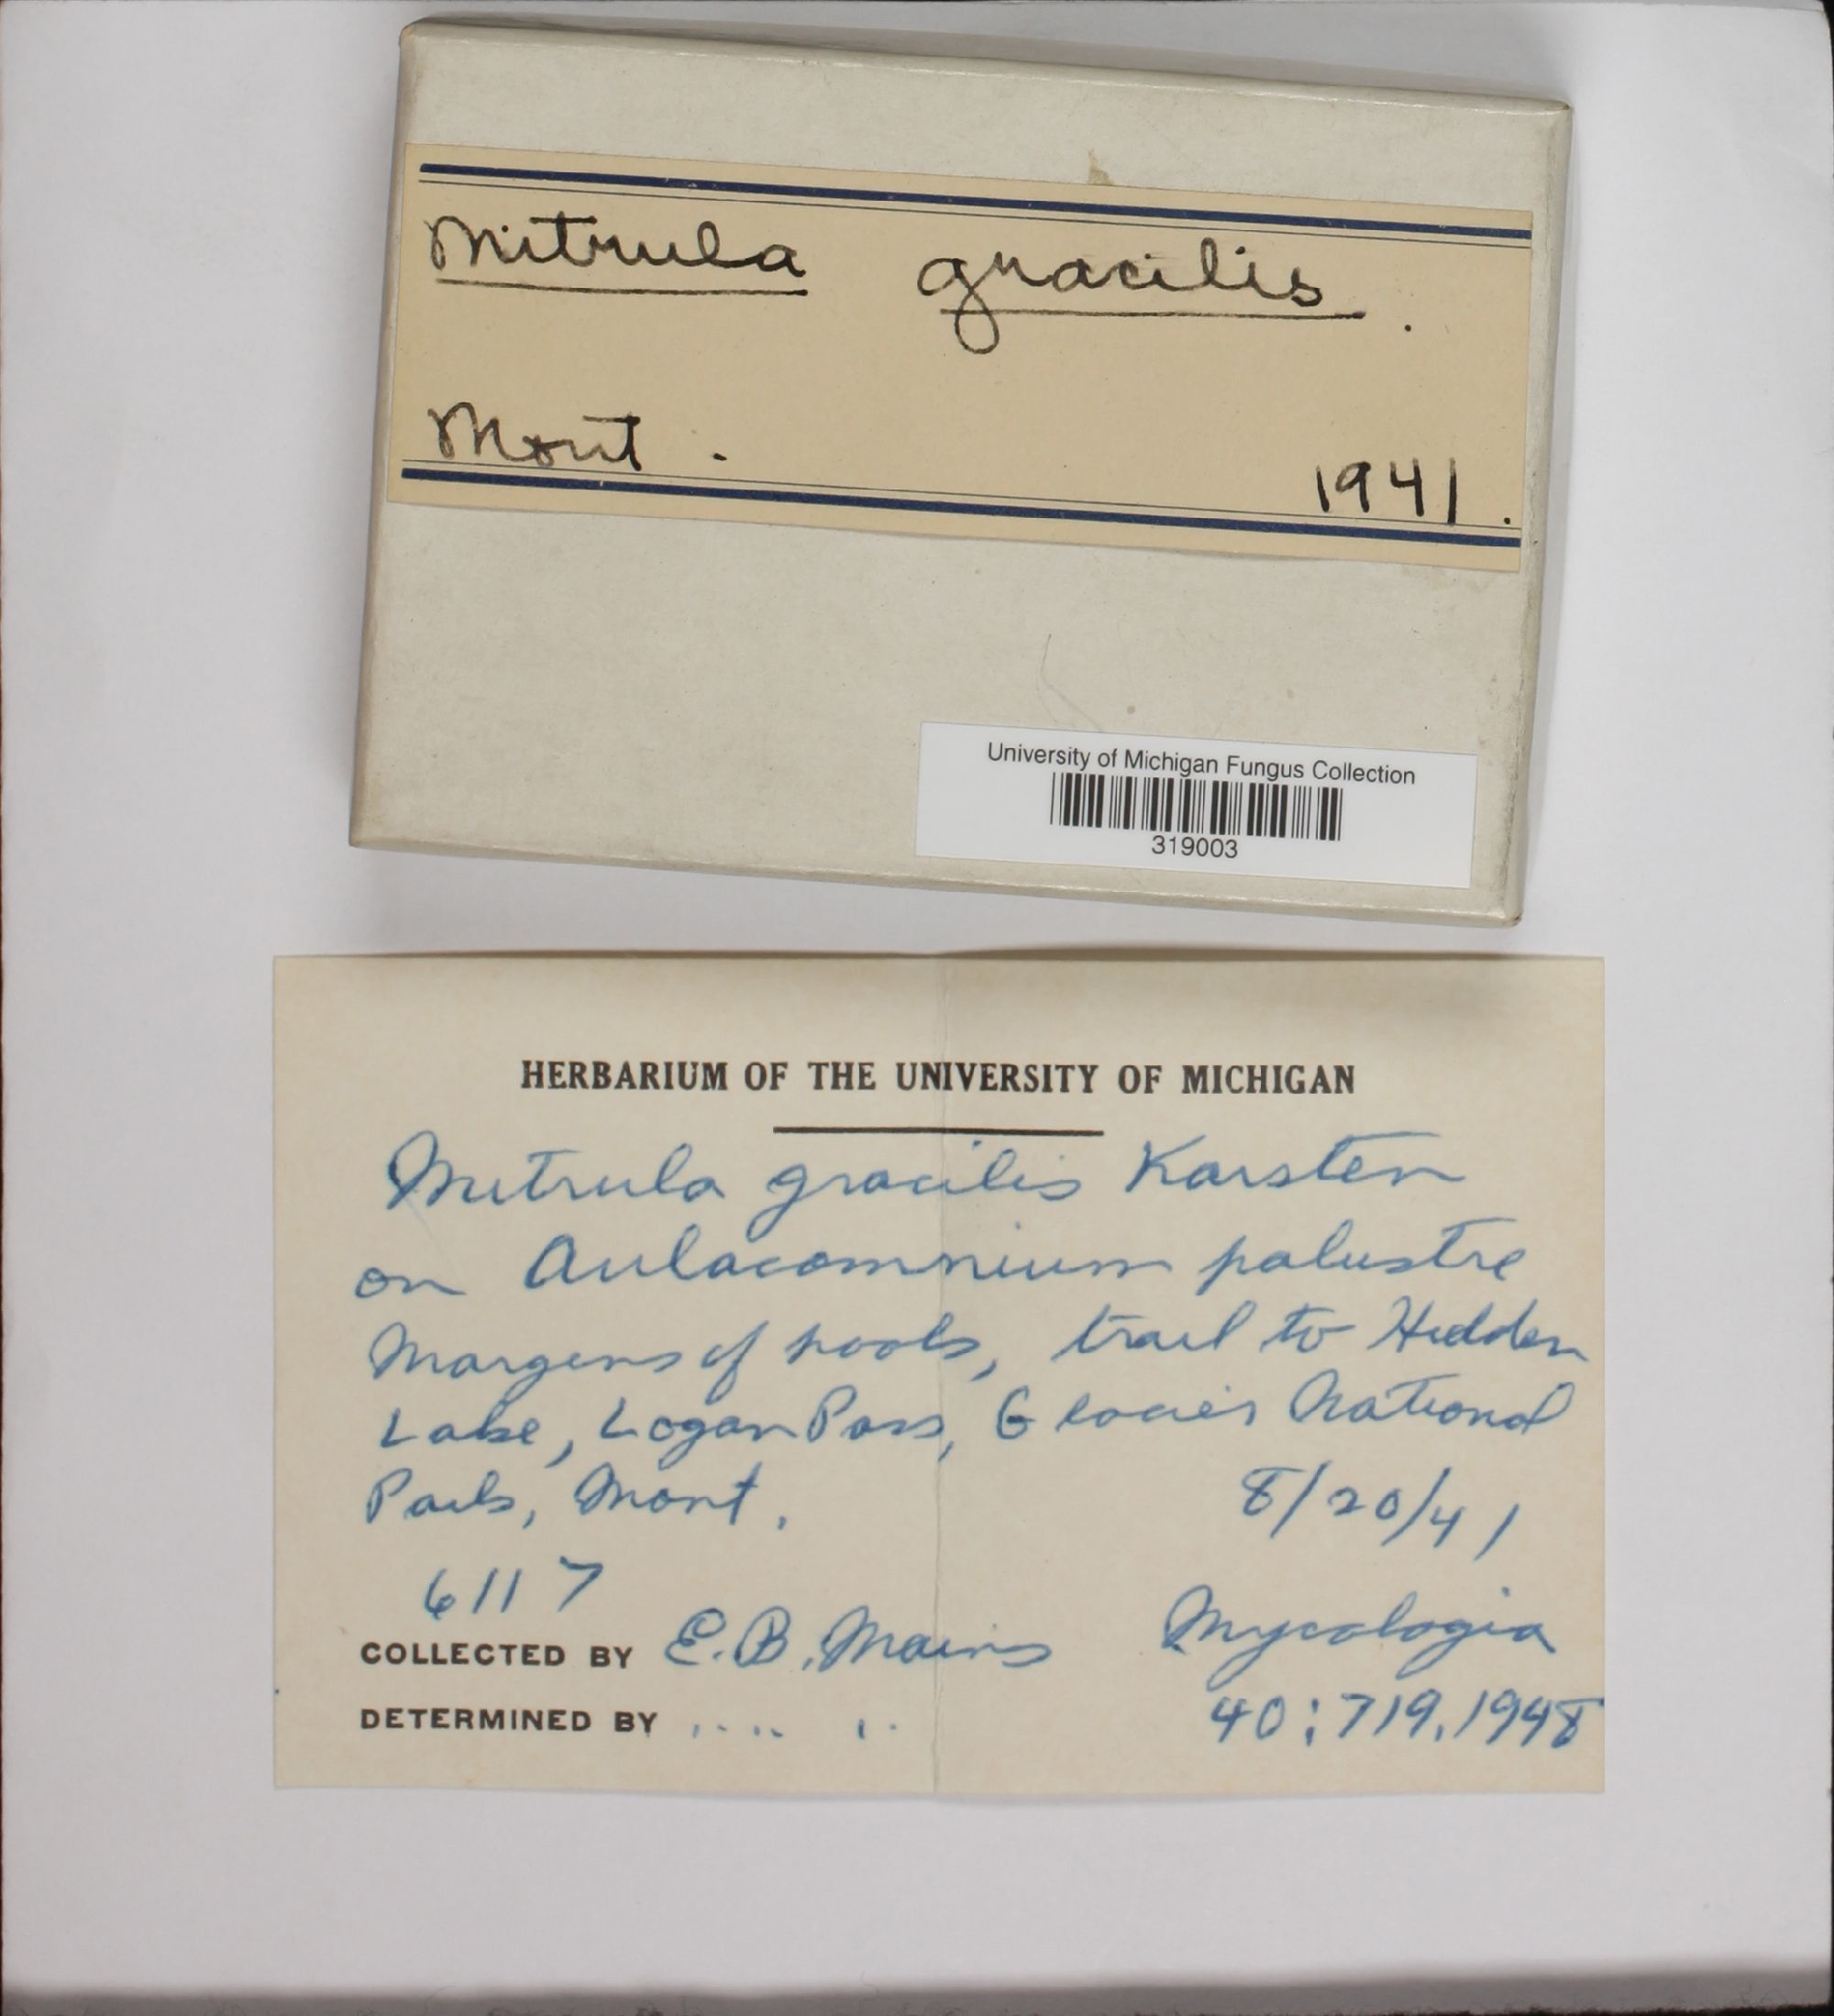 Mitrula gracilis.
Mont. 1941.
University of Michigan Fungus Collection
319003
HERBARIUM OF THE UNIVERSITY OF MICHIGAN
Mitrula gracilis Karsten
on Aulacomnium palustre
Margins of pools, trail to Hidden
Lake, Logan Pass, Glacier National
Park, Mont. 8/20/41
6117
COLLECTED BY E.B. Mains Mycologia
DETERMINED BY ,, ,, ,, 40:719.1948